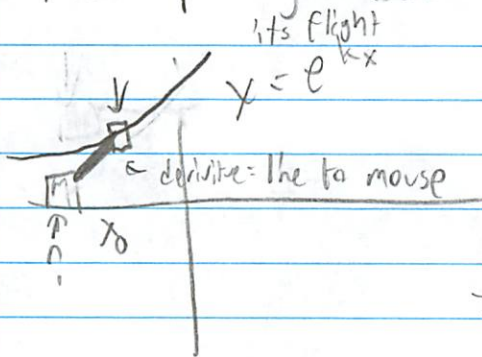 its flight
y = e^kx
derivitive = line to mouse
M
x₀